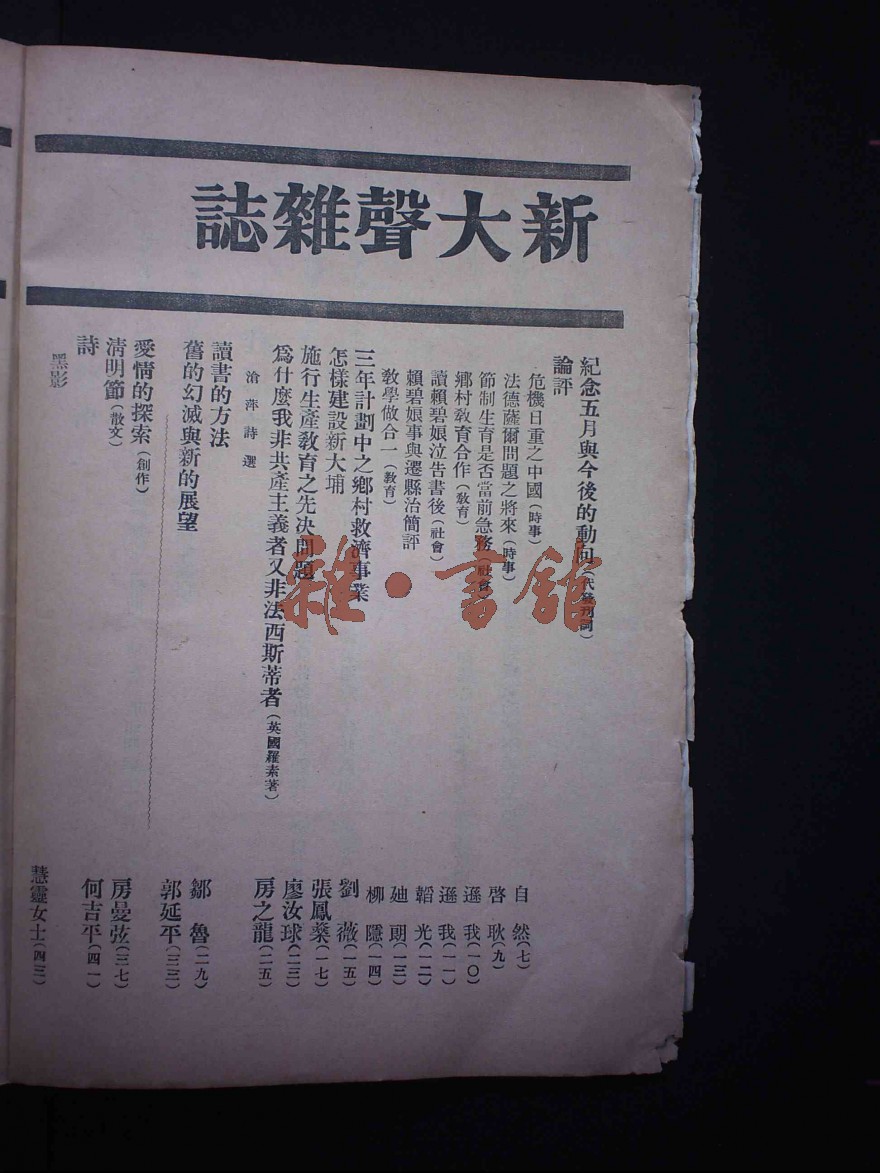 新大聲雜誌
紀念五月與今後的動向(代發刊詞)
論評
危機日重之中國(時事) 自然(七)
法德薩爾問題之將來(時事) 啓耿(九)
節制生育是否當前急務(社會) 遜我(一〇)
鄉村教育合作(教育) 遜我(一一)
讀賴碧娘泣告書後(社會) 韜光(一二)
賴碧娘事與遷縣治簡評 廸朗(一三)
教學做合一(教育) 柳隱(一四)
三年計劃中之鄉村救濟事業 劉薇(一五)
怎樣建設新大埔 張鳳燊(一七)
施行生產教育之先决問題 廖汝球(二三)
爲什麼我非共產主義者又非法西斯蒂者(英國羅素著) 房之龍(二五)
滄萍詩選
讀書的方法 鄒魯(二九)
舊的幻滅與新的展望 郭延平(三三)
愛情的探索(創作) 房曼弦(三七)
淸明節(散文) 何吉平(四一)
詩
黑影 慧靈女士(四三)
雜·書館